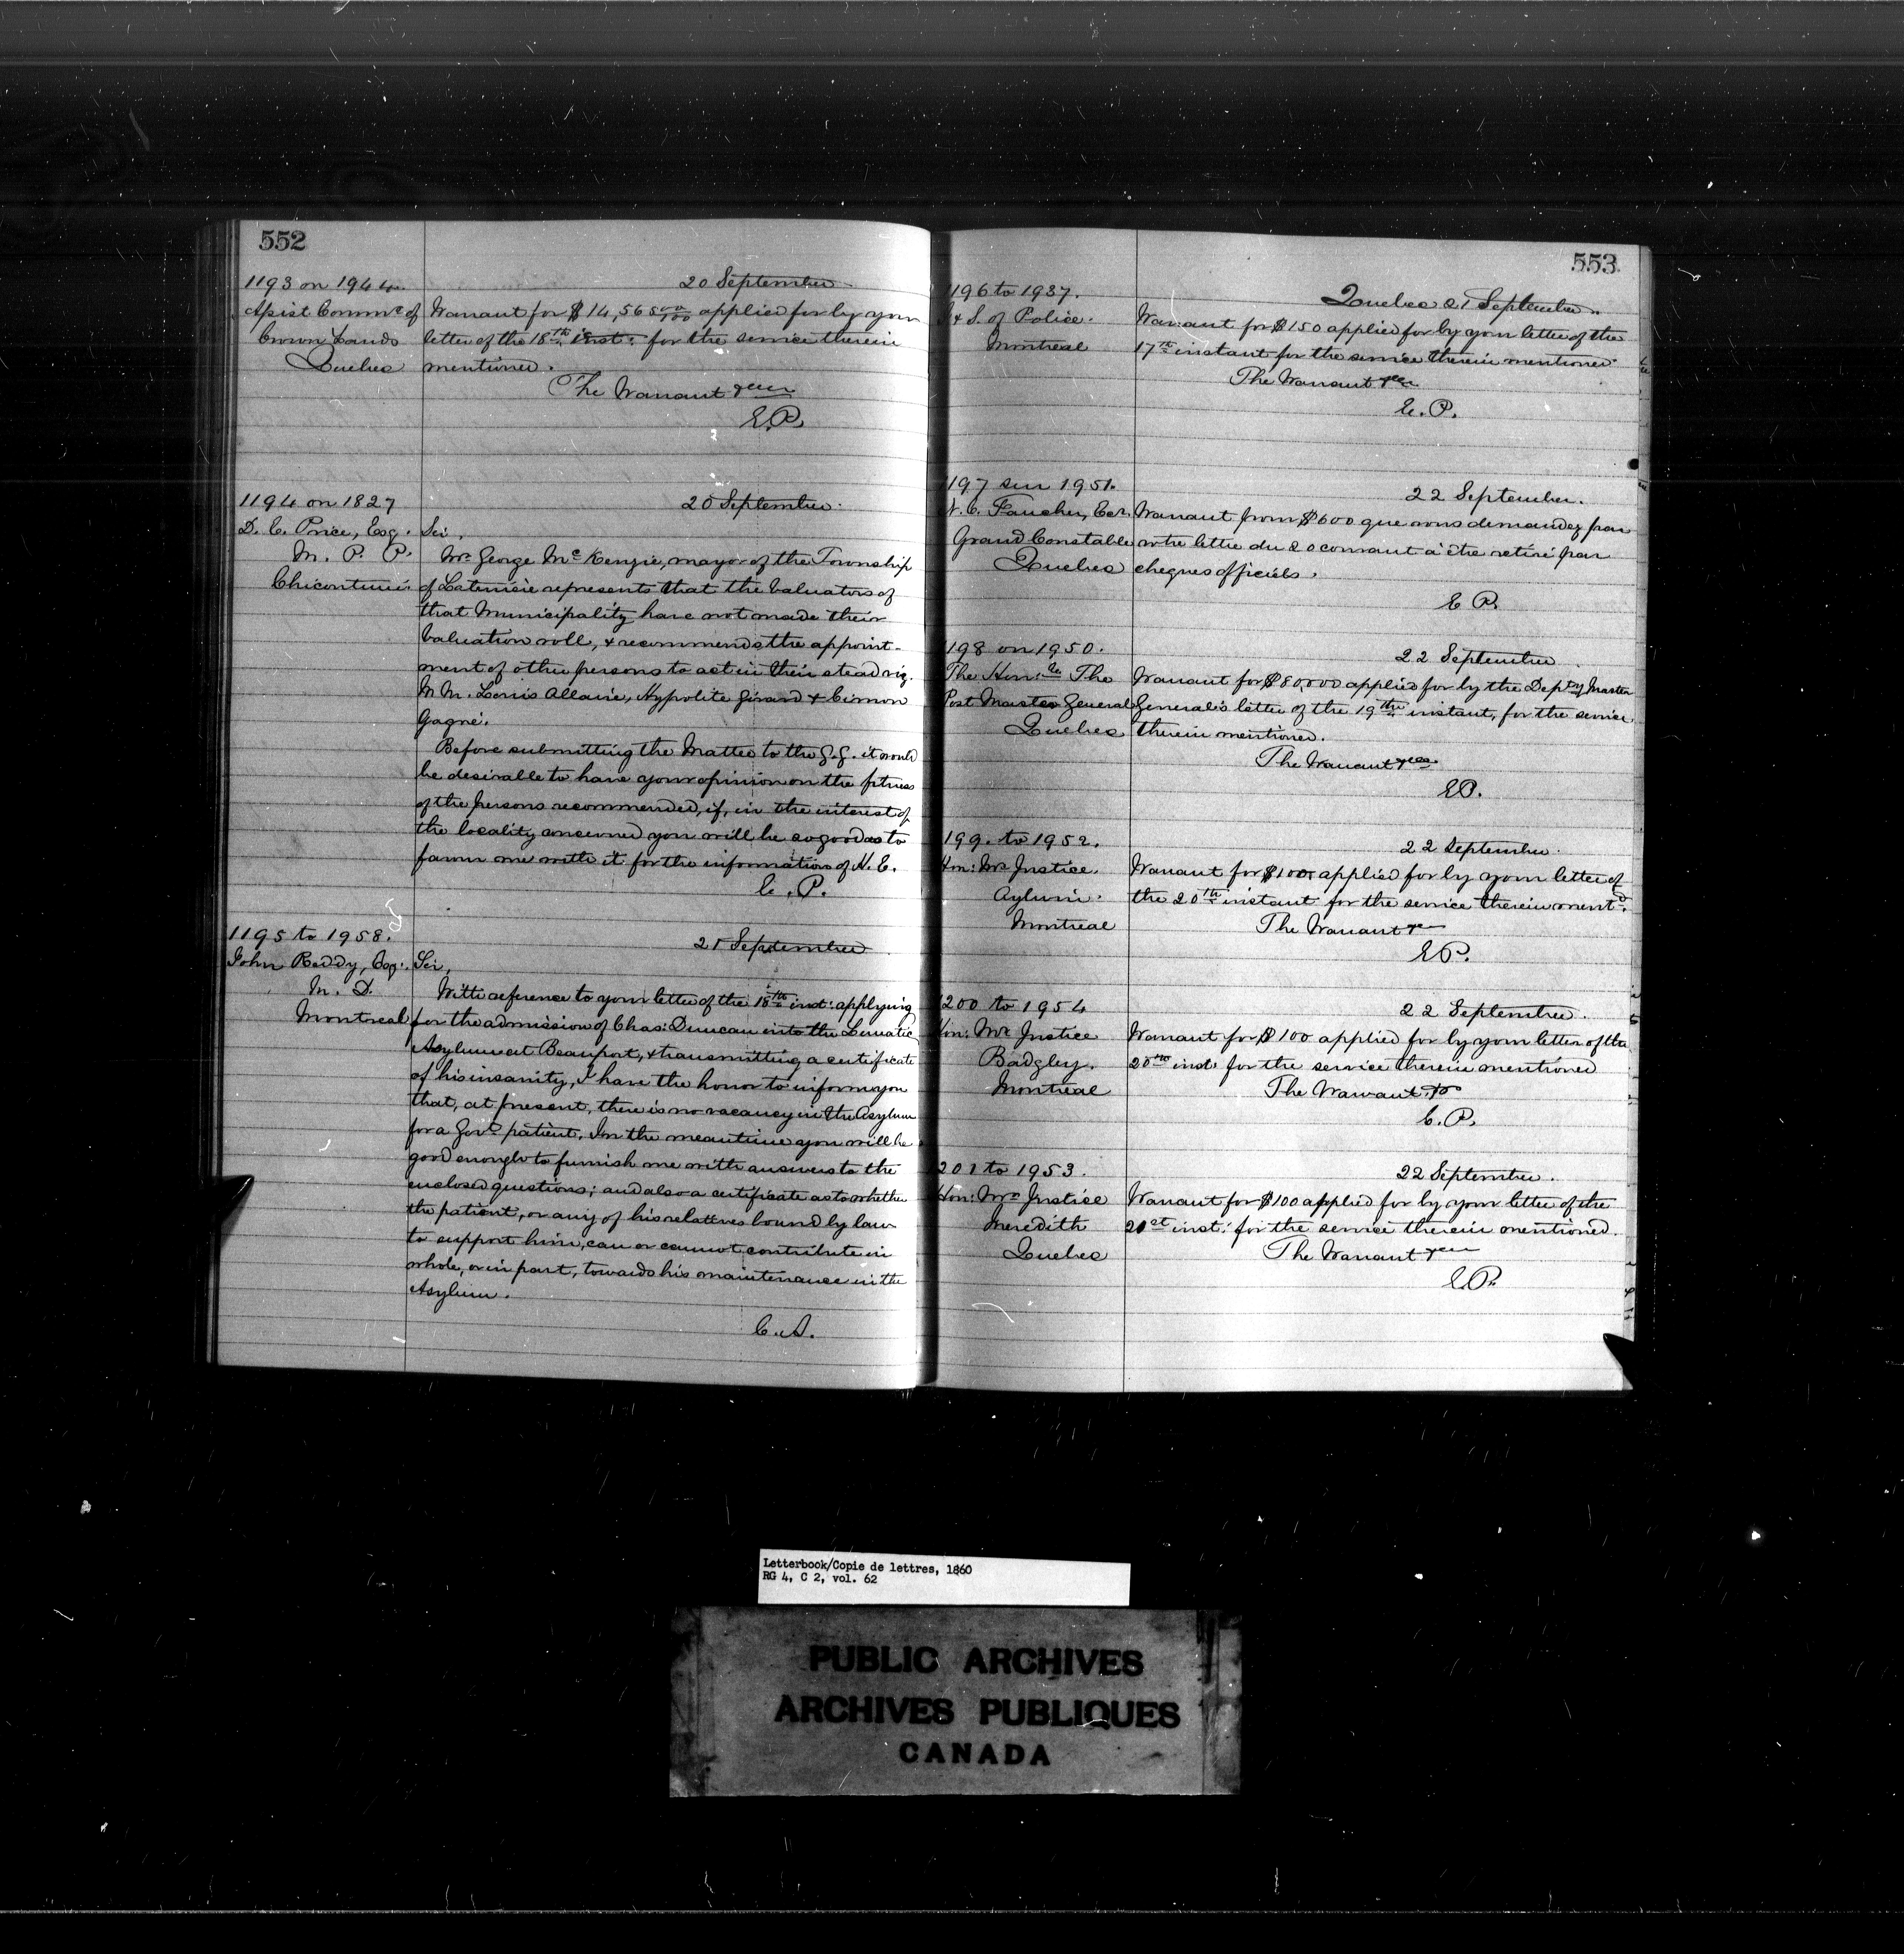 552
1193 on 1944.
20 September
Assist Commr of
Crown Lands
Quebec
Warrant for $14,565 applied for by your
letter of the 18th inst: for the service therein
mentioned.
The Warrant
E.P.
1194 on 1827
20 September.
D. E. Price, Esq.
M. P. P.
Chicoutimi.
Sir,
Mr George Mc Kenzie, mayor of the Township
of Laterriere represents that the Valuators of
that Municipality have not made their
Valuation roll, & recommends the appoint-
ment of other persons to act in their stead viz.
M M. Louis Allaire, Hypolite Girard & Cimon
Gagné.
Before submitting the Matter to the G.G. it would
be desirable to have your opinion on the fitness
of the persons recommended, if, in the interest of
the locality concerned you will be so good as to
favor me with it for the information of H. E.
E. P.
1195 to 1958.
21 September
John Reddy, Esq.
M. D.
Montreal
Sir,
With reference to your letter of the 18th inst: applying
for the admission of Chas: Duncan into the Lunatic
Asylum at Beauport, & transmitting a certificate
of his insanity, I have the honor to inform you
that, at present, there is no vacancy in the Asylum
for a Govt patient. In the meantime you will be
good enough to furnish me with answers to the
enclosed questions; and also a certificate as to whether
the patient, or any of his relatives bound by law
to support him, can or cannot contribute in
whole, or in part, towards his maintenance in the
Asylum.
C. A.
553
1196 to 1937.
Quebec 21 September.
I & S. of Police.
Montreal
Warrant for $150 applied for by your letter of the
17th instant for the service therein mentioned
The Warrant
E. P.
1197 sur 1951.
22 September.
N. C. Faucher, Ecr.
Grand Constable
Quebec
Warrant pour $600 que vous demandez par
votre lettre du 20 courant à être retiré par
cheques officiels.
E P.
1198 on 1950.
22 September
The Honble The
Post Master General
Quebec
Warrant for $80,000 applied for by the Depty Master
General's letter of the 19th instant, for the service
therein mentioned.
The Warrant
EP.
1199. to 1952.
22 September.
Hon: Mr Justice
Aylwin.
Montreal
Warrant for $100 applied for by your letter of
the 20th instant for the service therein mentd.
The Warrant
EP.
1200 to 1954
22 September.
Hon: Mr Justice
Badgley.
Montreal
Warrant for $100 applied for by your letter of the
20th inst: for the service therein mentioned
The Warrant
E.P.
1201 to 1953.
22 September.
Hon: Mr Justice
Meredith
Quebec
Warrant for $100 applied for by your letter of the
21st inst: for the service therein mentioned.
The Warrant
E.P.
Letterbook/Copie de lettres, 1860
RG 4, C 2, vol. 62
PUBLIC ARCHIVES
ARCHIVES PUBLIQUES
CANADA